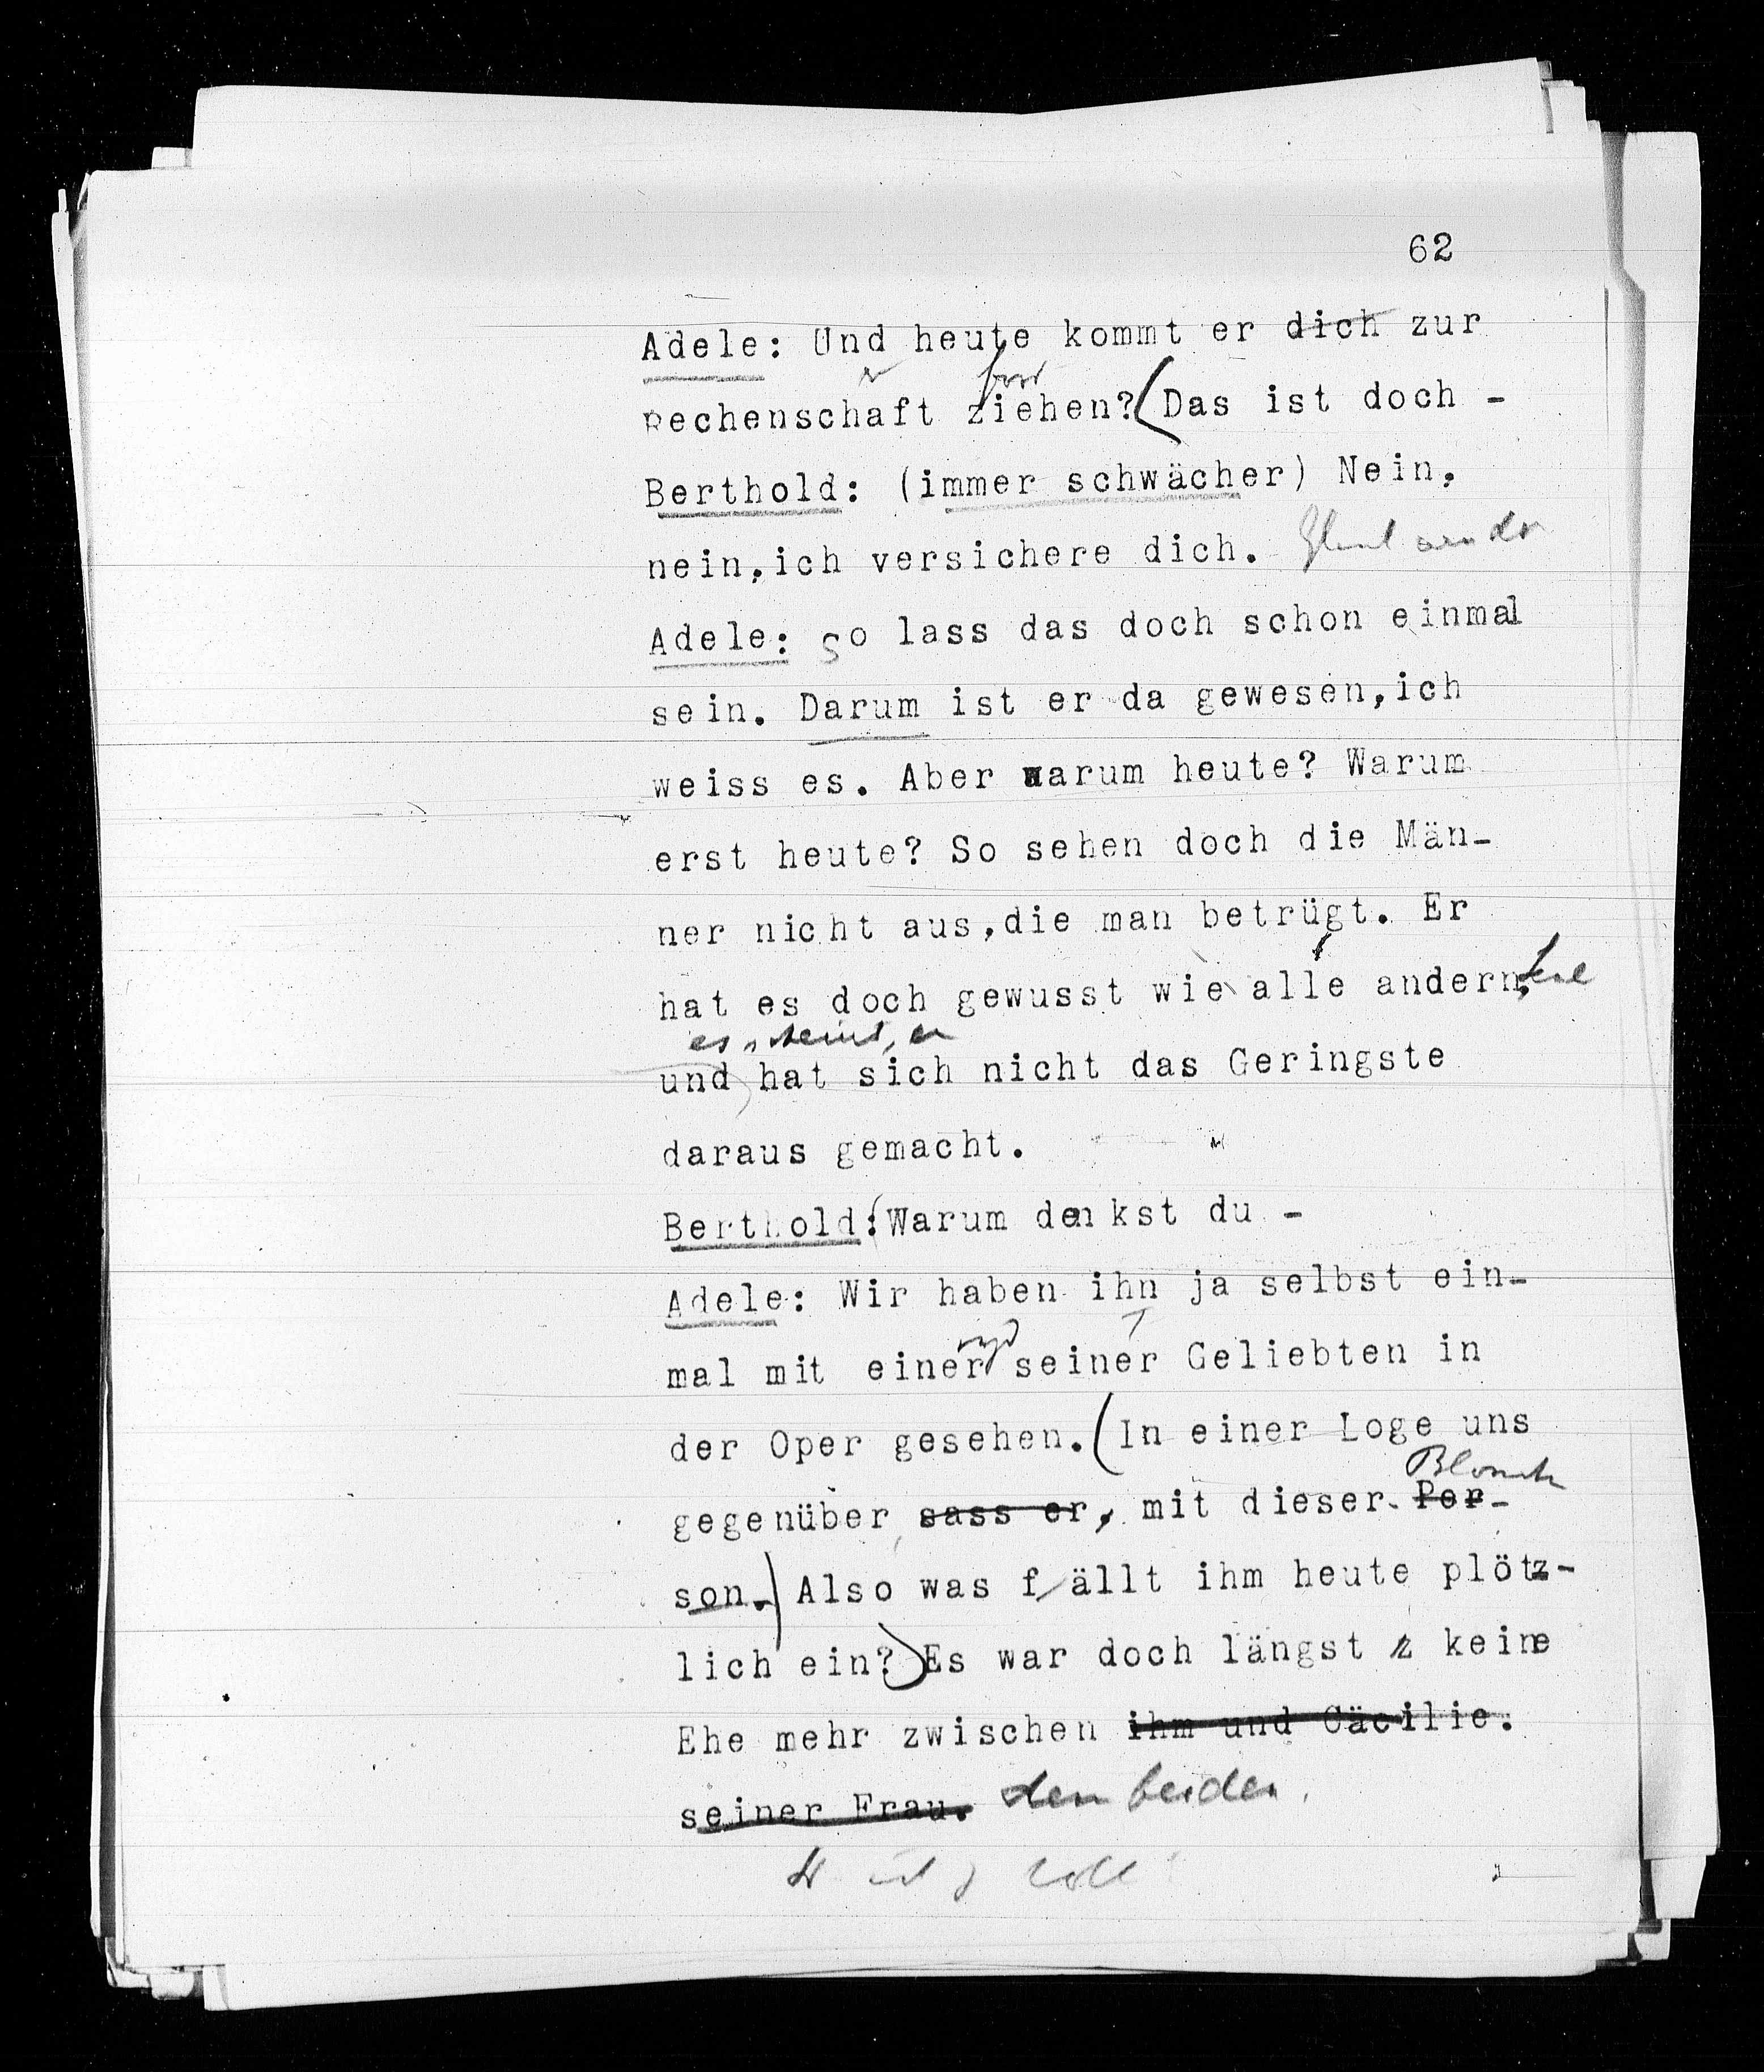 62
Adele: Und heute kommt er dich zur
Rechenschaft ziehen? (Das ist doch -
Berthold: (immer schwächer) Nein,
nein, ich versichere dich.
Adele: So lass das doch schon einmal
sein. Darum ist er da gewesen, ich
weiss es. Aber warum heute? Warum
erst heute? So sehen doch die Män-
ner nicht aus, die man betrügt. Er
hat es doch gewusst wie alle andern,
es scheint, er
und hat sich nicht das Geringste
daraus gemacht.
Berthold: (Warum denkst du -
Adele: Wir haben ihn ja selbst ein-
mal mit einer seiner Geliebten in
der Oper gesehen. (In einer Loge uns
Blonden
gegenüber sass er, mit dieser Per-
son.) Also was fällt ihm heute plötz-
lich ein?) Es war doch längst keine
Ehe mehr zwischen ihm und Cäcilie.
seiner Frau. den beiden.